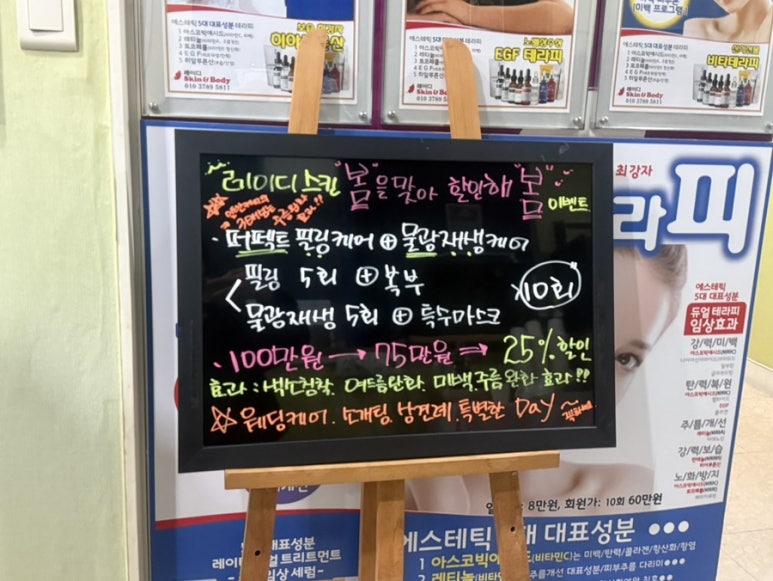 에스테틱 5대 대표성분 테라피
1 아스코빅애시드
2 레티놀
3 토코페롤
4 E G F
5 히알루론산
레이디
Skin & Body
010 3789 5811
노벨연수상
EGF 테라피
비타테라피
미백 프로그램
최강자
라피
레이디스킨 "봄"을 맞아 할인해 "봄" 이벤트
효과!!
· 퍼펙트 필링케어 ⊕ 물광재생케어
필링 5회 ⊕ 복부
물광재생 5회 ⊕ 특수마스크
x10회
· 100만원 → 75만원 ⇒ 25% 할인
효과 : 색소침착, 여드름완화, 미백주름완화 효과!!
☆ 웨딩케어. 소개팅. 상견례. 특별한 Day ~
에스테틱
5대 대표성분
듀얼 테라피
임상효과
강/력/미/백
탄/력/복/원
주/름/개/선
강/력/보/습
노/화/방/지
8만원, 회원가: 10회 60만원
에스테틱 대 대표성분
1 아스코빅애 드(비타민C)는 미백/탄력/콜라겐/항산화/항염
2 레티놀(비타민 주름개선 대표성분/피부주름 다리미
대표성분
트리트먼트
임상 세럼